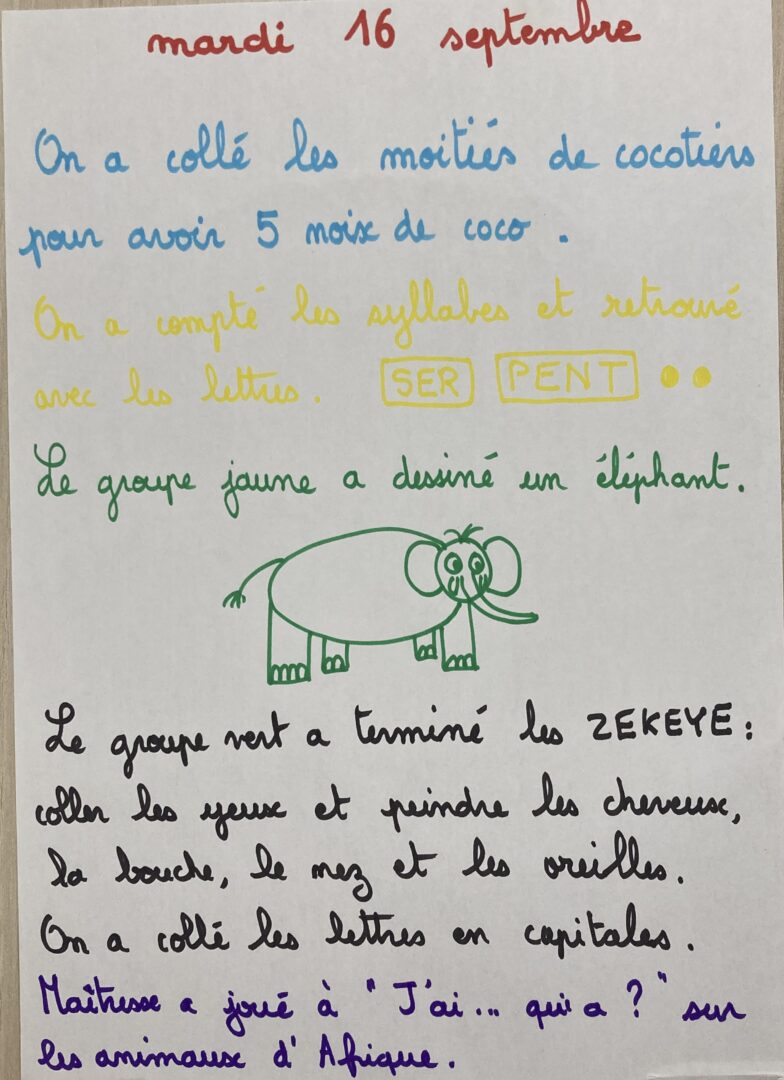 mardi 16 septembre
On a collé les moitiés de cocotiers
pour avoir 5 noix de coco .
On a compté les syllabes et retrouvé
avec les lettres. SER PENT
Le groupe jaune a dessiné un éléphant.
Le groupe vert a terminé les ZEKEYE :
coller les yeux et peindre les cheveux,
la bouche, le nez et les oreilles.
On a collé les lettres en capitales.
Maîtresse a joué à "J'ai... qui a ?" sur
les animaux d'Afrique.